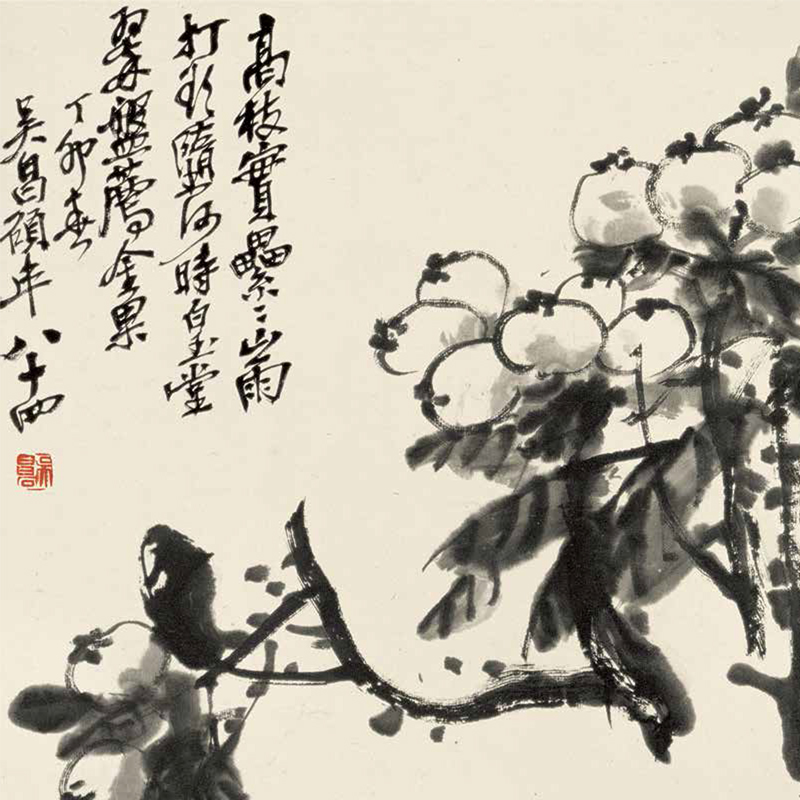 高枝實纍〻山雨
打欲墮何時白玉堂
翠盤薦金果
丁卯春
吳昌碩年八十四